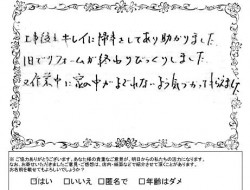 工事後も キレイに 掃除をしてあり助かりました
1日でリフォームが 終わりびっくりしました
又作業中に 家の中がよごれない よう気づかって もらえました
※ご協力ありがとうございます。あなた様の貴重なご意見が、明日からの私たちの活力になります。
なお、お喜びいただきましたご意見・ご感想は、店内・紙面などで紹介させて頂くことがあります。
お名前を載せてもよろしいでしょうか?
□はい □いいえ □匿名で □年齢はダメ